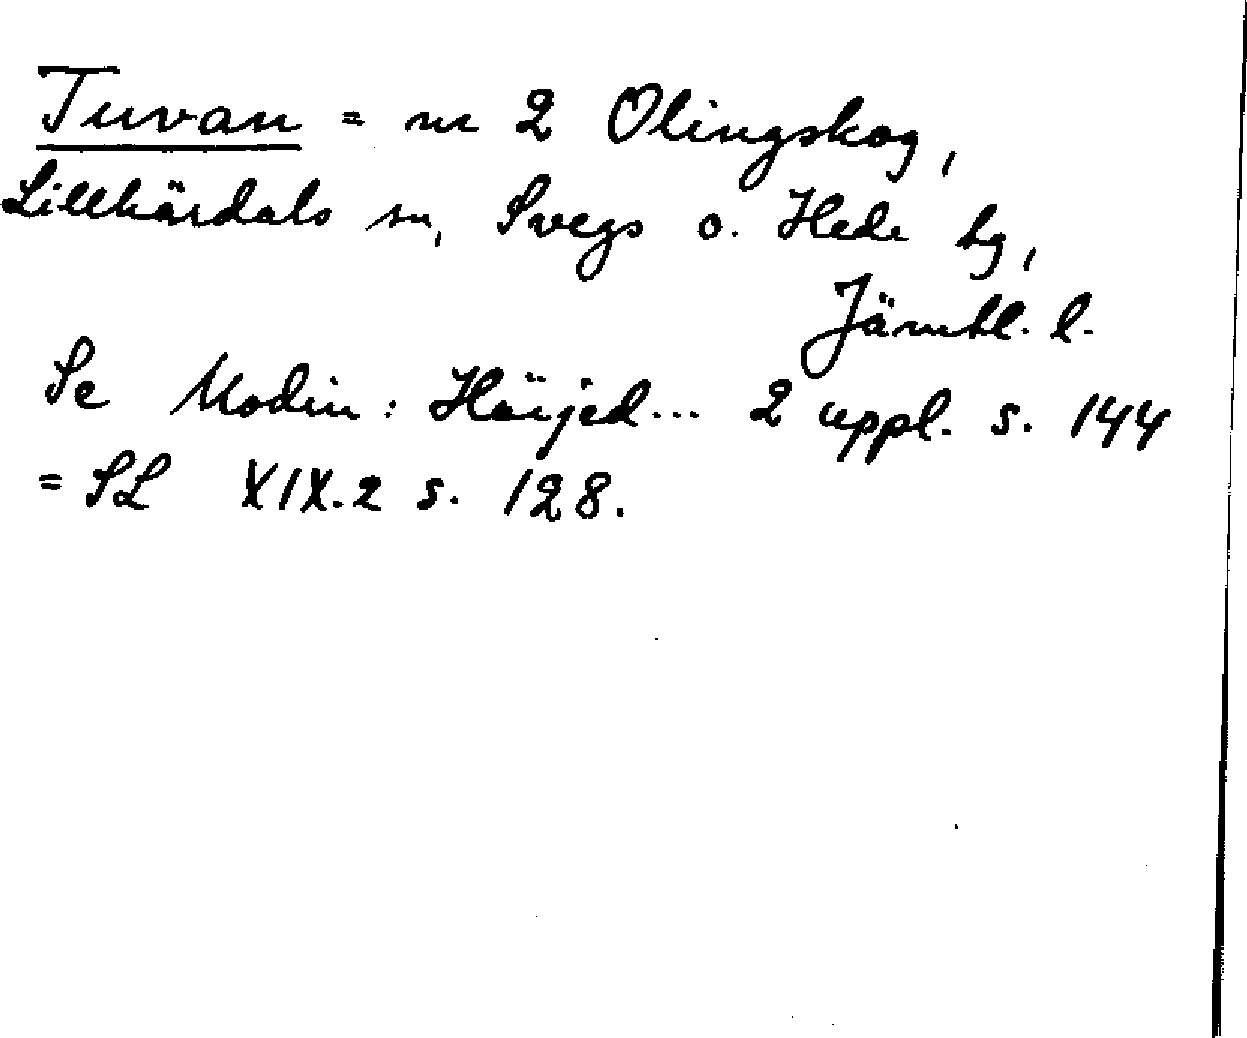 Tuvan = nr 2 Olingskog,
Lillhärdals sn, Svegs o. Hede tg,
Jämtl. l.
Se Modin: Härjed... 2 uppl. s. 144
= SL XIX.2 s. 128.